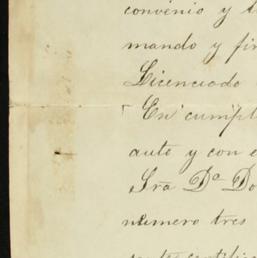 convenio y t
mando y fir
Licenciado
En cumpl
auto y con e
Sra Da Do
numero tres